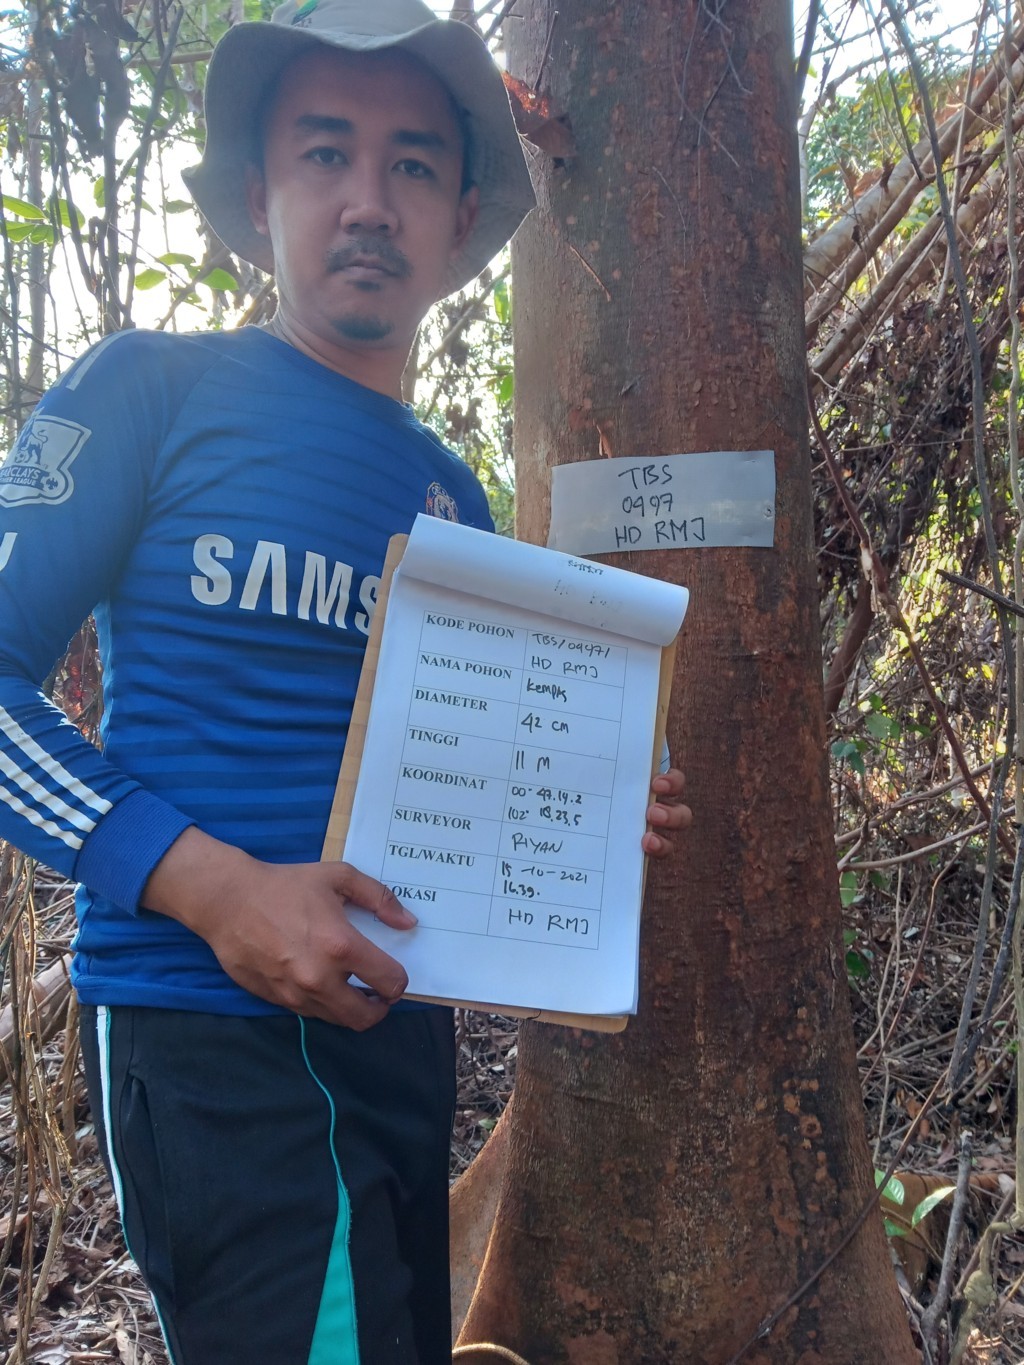 BARCLAYS
PREMIER LEAGUE
SAMS
TBS
0497
HD RMJ
KODE POHON TBS/0497/
HD RMJ
NAMA POHON Kempas
DIAMETER 42 CM
TINGGI 11 M
KOORDINAT 00° 47.14.2
102° 18.23.5
SURVEYOR RIYAN
TGL/WAKTU 15-10-2021
16.39.
LOKASI HD RMJ